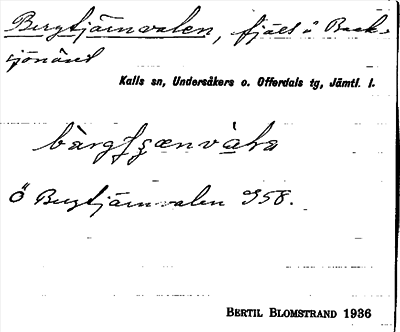 Bergtjärnvalen, fjäll ö Back-
sjönäset
Kalls sn, Undersåkers o. Offerdals tg, Jämtl. l.
Ö Bergtjärnvalen 958.
BERTIL BLOMSTRAND 1936